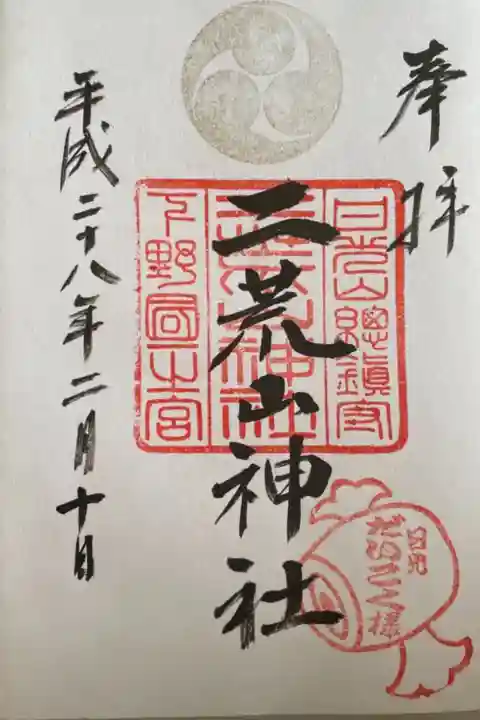 奉拝
日光山總鎮守
二荒山神社
二荒山神社
下野國一之宮
日光
だいこく様
平成二十八年二月十日